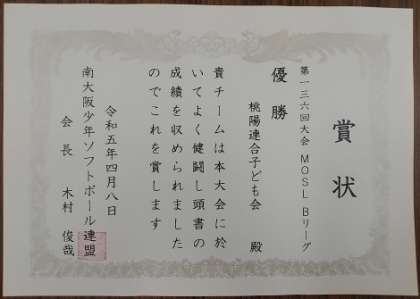 賞状
第一三六回大会 MOSL Bリーグ
優勝
桃陽連合子ども会 殿
貴チームは本大会に於
いてよく健闘し頭書の
成績を収められました
のでこれを賞します
令和五年四月八日
南大阪少年ソフトボール連盟
会長 木村 俊哉